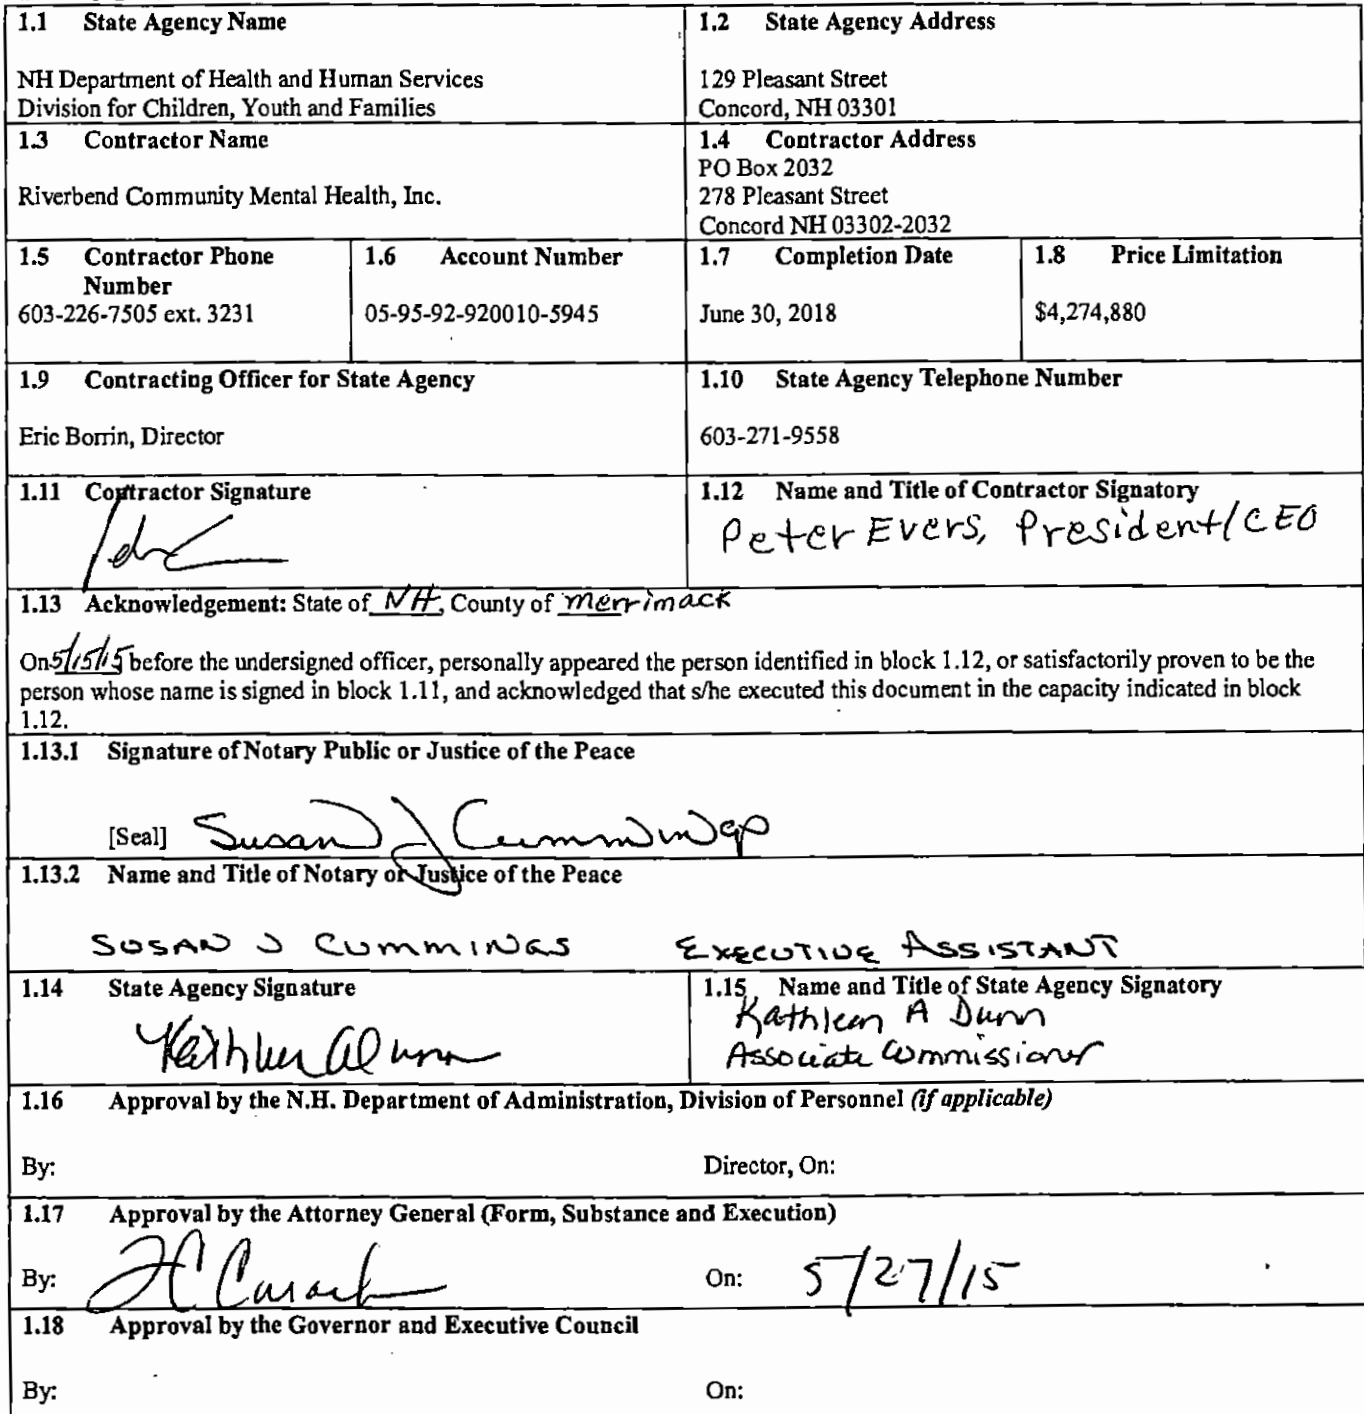 1.1 State Agency Name
NH Department of Health and Human Services
Division for Children, Youth and Families
1.2 State Agency Address
129 Pleasant Street
Concord, NH 03301
1.3 Contractor Name
Riverbend Community Mental Health, Inc.
1.4 Contractor Address
PO Box 2032
278 Pleasant Street
Concord NH 03302-2032
1.5 Contractor Phone
Number
603-226-7505 ext. 3231
1.6 Account Number
05-95-92-920010-5945
1.7 Completion Date
June 30, 2018
1.8 Price Limitation
$4,274,880
1.9 Contracting Officer for State Agency
Eric Borrin, Director
1.10 State Agency Telephone Number
603-271-9558
1.11 Contractor Signature
1.12 Name and Title of Contractor Signatory
Peter Evers, President/CEO
1.13 Acknowledgement: State of NH, County of Merrimack
On 5/15/15 before the undersigned officer, personally appeared the person identified in block 1.12, or satisfactorily proven to be the
person whose name is signed in block 1.11, and acknowledged that s/he executed this document in the capacity indicated in block
1.12.
1.13.1 Signature of Notary Public or Justice of the Peace
[Seal] Susan J Cummings
1.13.2 Name and Title of Notary or Justice of the Peace
SUSAN J CUMMINGS EXECUTIVE ASSISTANT
1.14 State Agency Signature
Kathleen A Dunn
1.15 Name and Title of State Agency Signatory
Kathleen A Dunn
Associate Commissioner
1.16 Approval by the N.H. Department of Administration, Division of Personnel (if applicable)
By: Director, On:
1.17 Approval by the Attorney General (Form, Substance and Execution)
By: On: 5/27/15
1.18 Approval by the Governor and Executive Council
By: On: